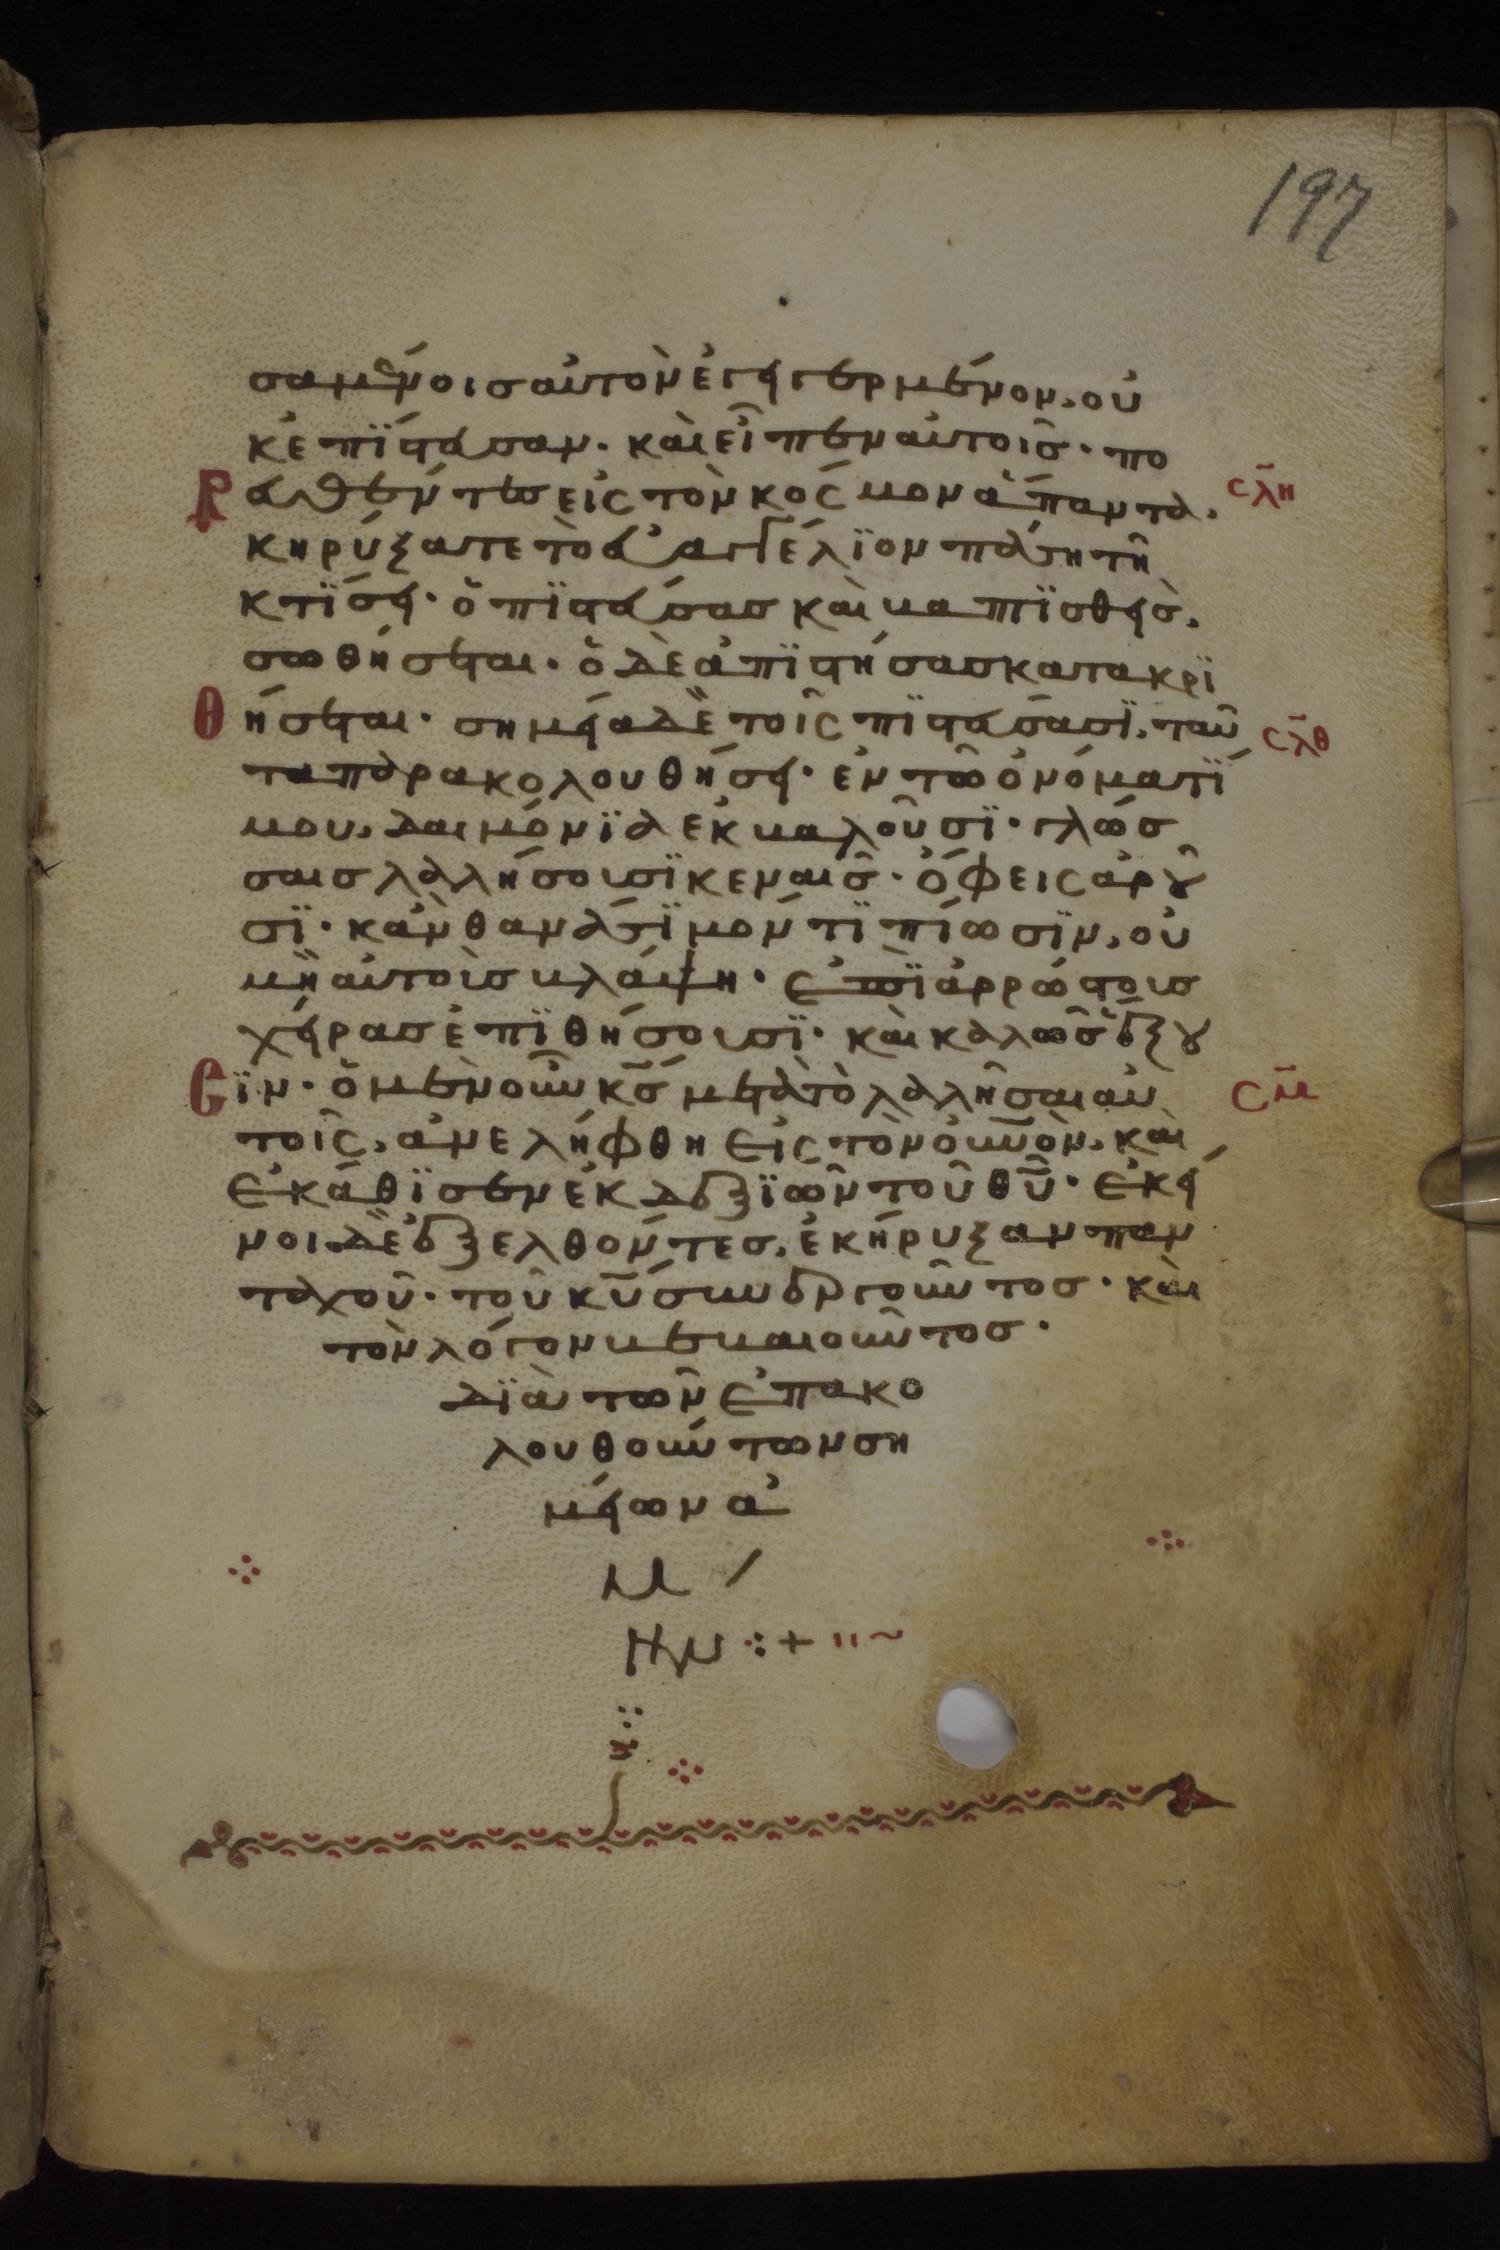 197
σαμένοις αὐτὸν ἐγηγερμένον, οὐ
κ ἐπίστευσαν· καὶ εἶπεν αὐτοῖς· πο
ρευθέντες εἰς τὸν κόσμον ἅπαντα, σλη
κηρύξατε τὸ εὐαγγέλϊον πάση τῆ
κτΐσει· ὁ πϊστεύσας καὶ βαπτϊσθεὶς,
σωθήσεται· ὁ δὲ ἀπϊστήσας κατακρϊ
θήσεται· σημεῖα δὲ τοῖς πϊστεύσασϊ, ταῦ σλθ
τα παρακολουθήσει· ἐν τῶ ὀνόματΐ
μου, δαιμόνϊα ἐκβαλοῦσϊ· γλώσ
σαις λαλήσουσϊ κεναῖς· ὄφεις ἀροῦ
σϊ· κἂν θανάσϊμόν τϊ πΐωσϊν, οὐ
μὴ αὐτοὺς βλάψη· ἐπϊ ἀρρώστους
χεῖρας ἐπϊθήσουσϊ· καὶ καλῶς ἕξου
σϊν· ὁ μὲν οὖν κ̅ς̅ μετὰ τὸ λαλῆσαι αὐ σμ
τοῖς, ἀνελήφθη εἰς τὸν οὐ̅νὸν, καὶ
ἐκάθϊσεν ἐκ δεξϊῶν τοῦ θ̅υ̅· ἐκεῖ
νοι δὲ ἐξελθόντες, ἐκήρυξαν παν
ταχοῦ· τοῦ κ̅υ̅ συνεργοῦντος· καὶ
τὸν λόγον βεβαιοῦντος·
δϊὰ τῶν ἐπακο
λουθούντων ση
μείων ἀ
μ
ήν ⁘+